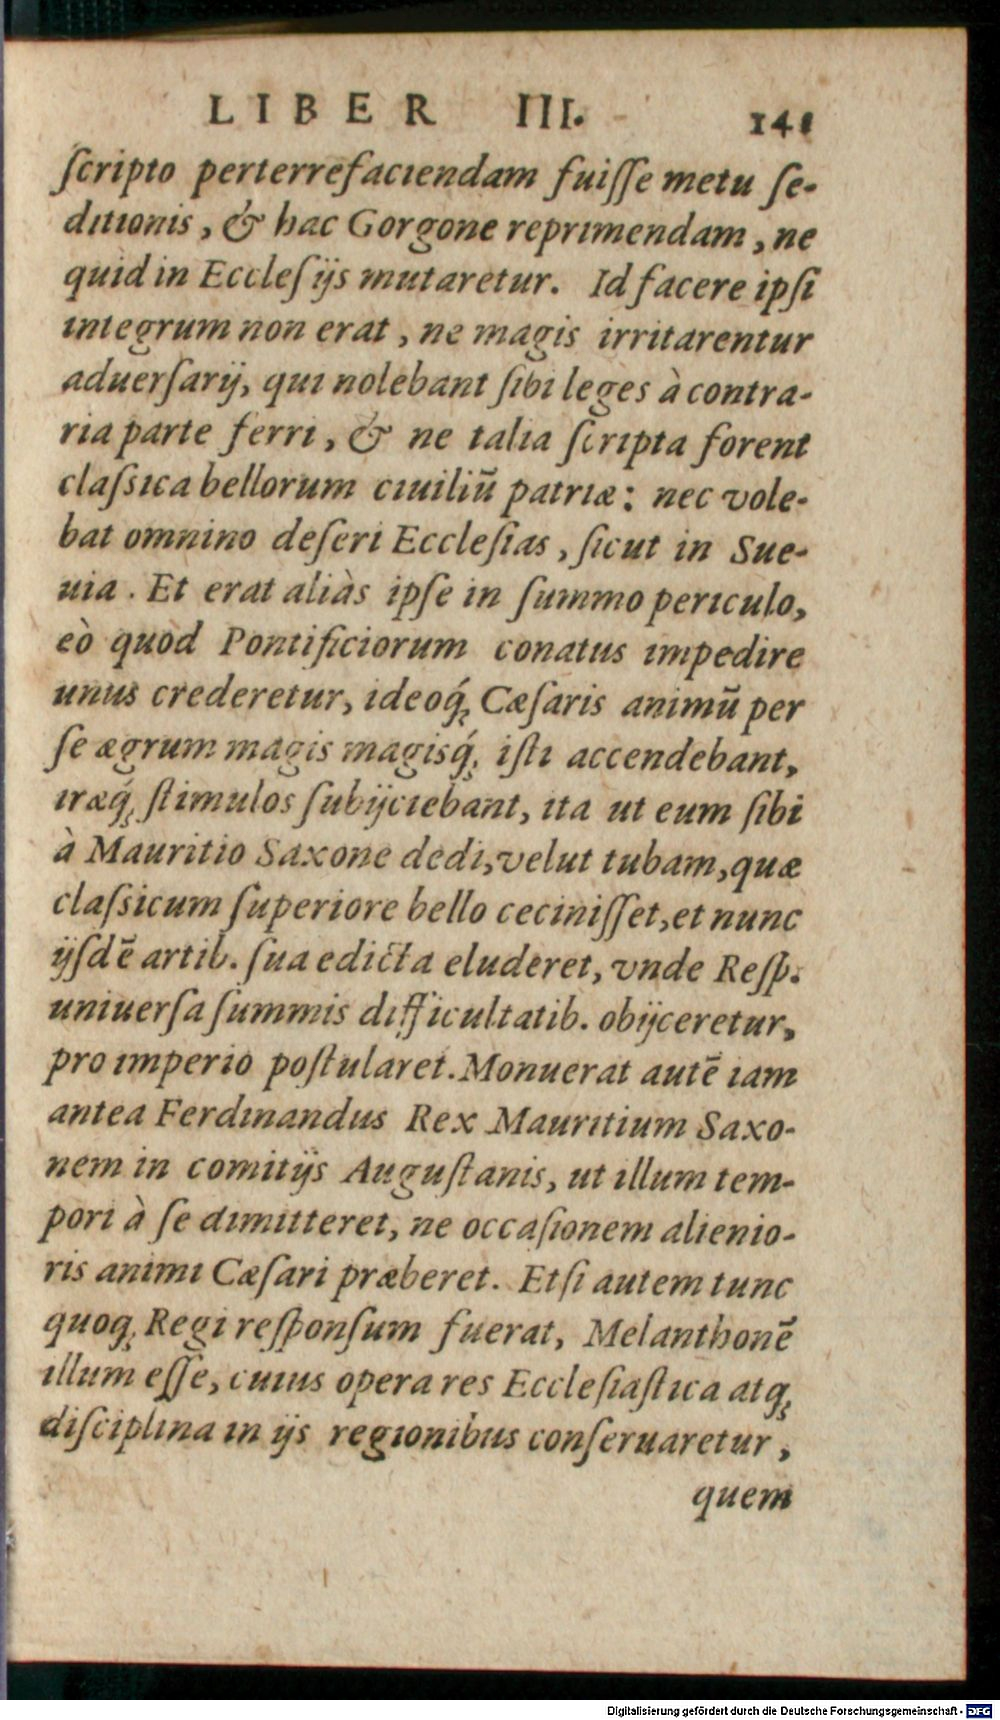 LIBER III. 141
ſcripto perterrefaciendam fuiſſe metu ſe-
ditionis, & hac Gorgone reprimendam, ne
quid in Eccleſijs mutaretur. Id facere ipſi
integrum non erat, ne magis irritarentur
aduerſarij, qui nolebant ſibi leges à contra-
ria parte ferri, & ne talia ſcripta forent
claſsica bellorum ciuiliū patriæ: nec vole-
bat omnino deſeri Eccleſias, ſicut in Sue-
uia. Et erat aliàs ipſe in ſummo periculo,
eò quod Pontificiorum conatus impedire
unus crederetur, ideoq́; Cæſaris animū per
ſe ægrum magis magisq́; iſti accendebant,
iræq́; ſtimulos ſubijciebant, ita ut eum ſibi
à Mauritio Saxone dedi, velut tubam, quæ
claſsicum ſuperiore bello ceciniſſet, et nunc
ijſdē artib. ſua edicta eluderet, vnde Reſp.
uniuerſa ſummis difficultatib. obijceretur,
pro imperio poſtularet. Monuerat autē iam
antea Ferdinandus Rex Mauritium Saxo-
nem in comitijs Auguſtanis, ut illum tem-
pori à ſe dimitteret, ne occaſionem alienio-
ris animi Cæſari præberet. Etſi autem tunc
quoq; Regi reſponſum fuerat, Melanthonē
illum eſſe, cuius opera res Eccleſiaſtica atq;
diſciplina in ijs regionibus conſeruaretur,
quem
Digitalisierung gefördert durch die Deutsche Forschungsgemeinschaft - DFG